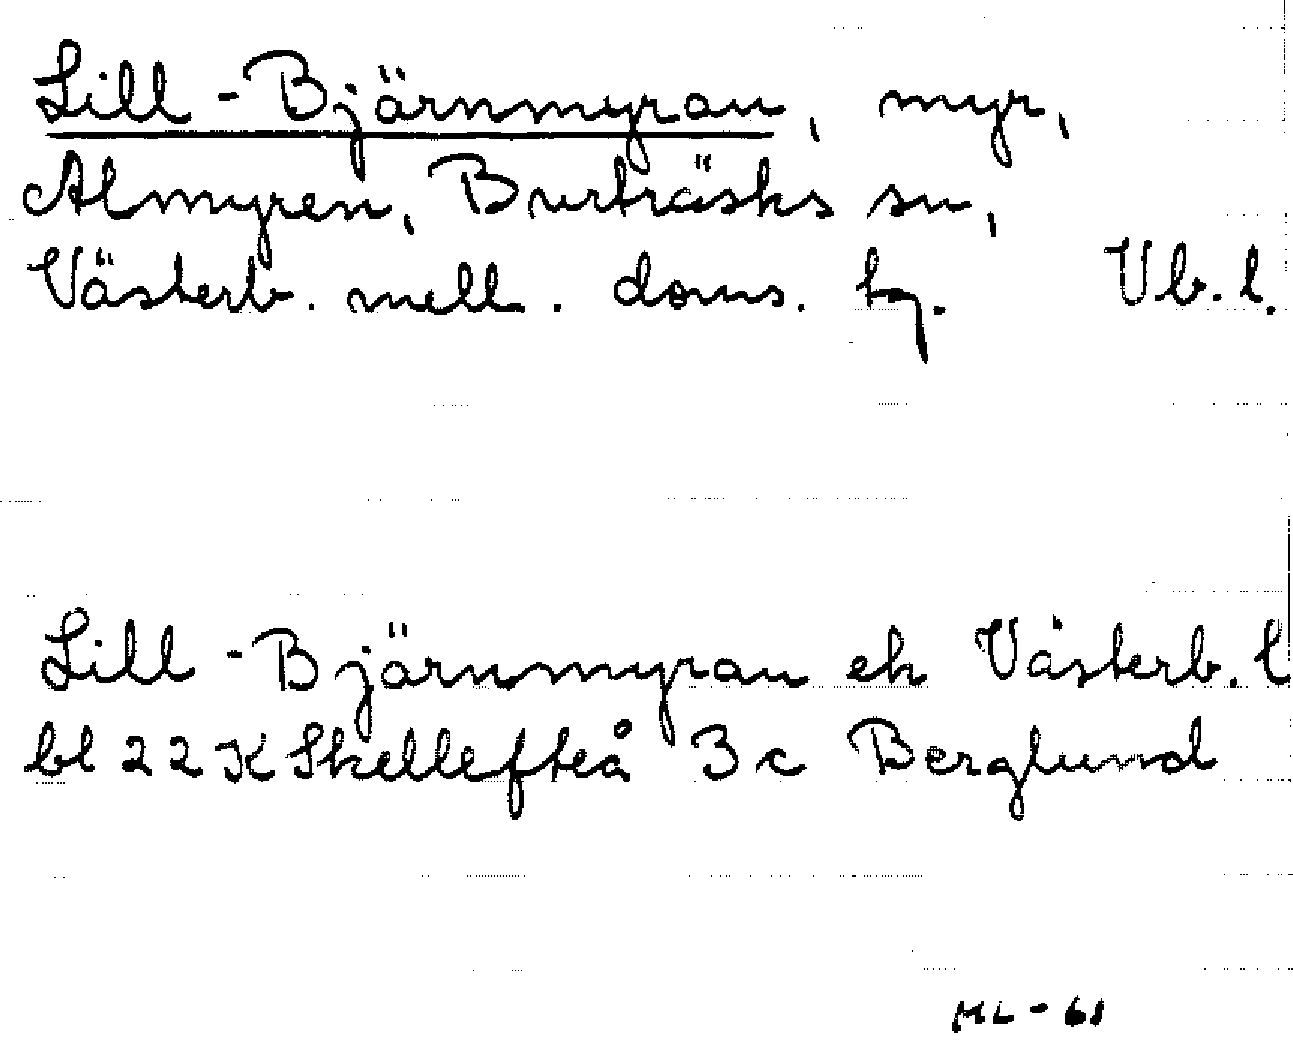 Lill-Bjärnmyran, myr,
Almyren, Burträsks sn,
Västerb. mell. doms. tg. Vb.l.
Lill-Bjärnmyran ek Västerb. l
bl 22K Skellefteå 3c Berglund
ML-61